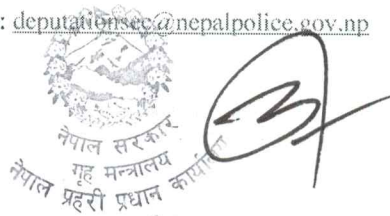 : deputationsec@nepalpolice.gov.np
नेपाल सरकार
गृह मन्त्रालय
नेपाल प्रहरी प्रधान कार्यालय